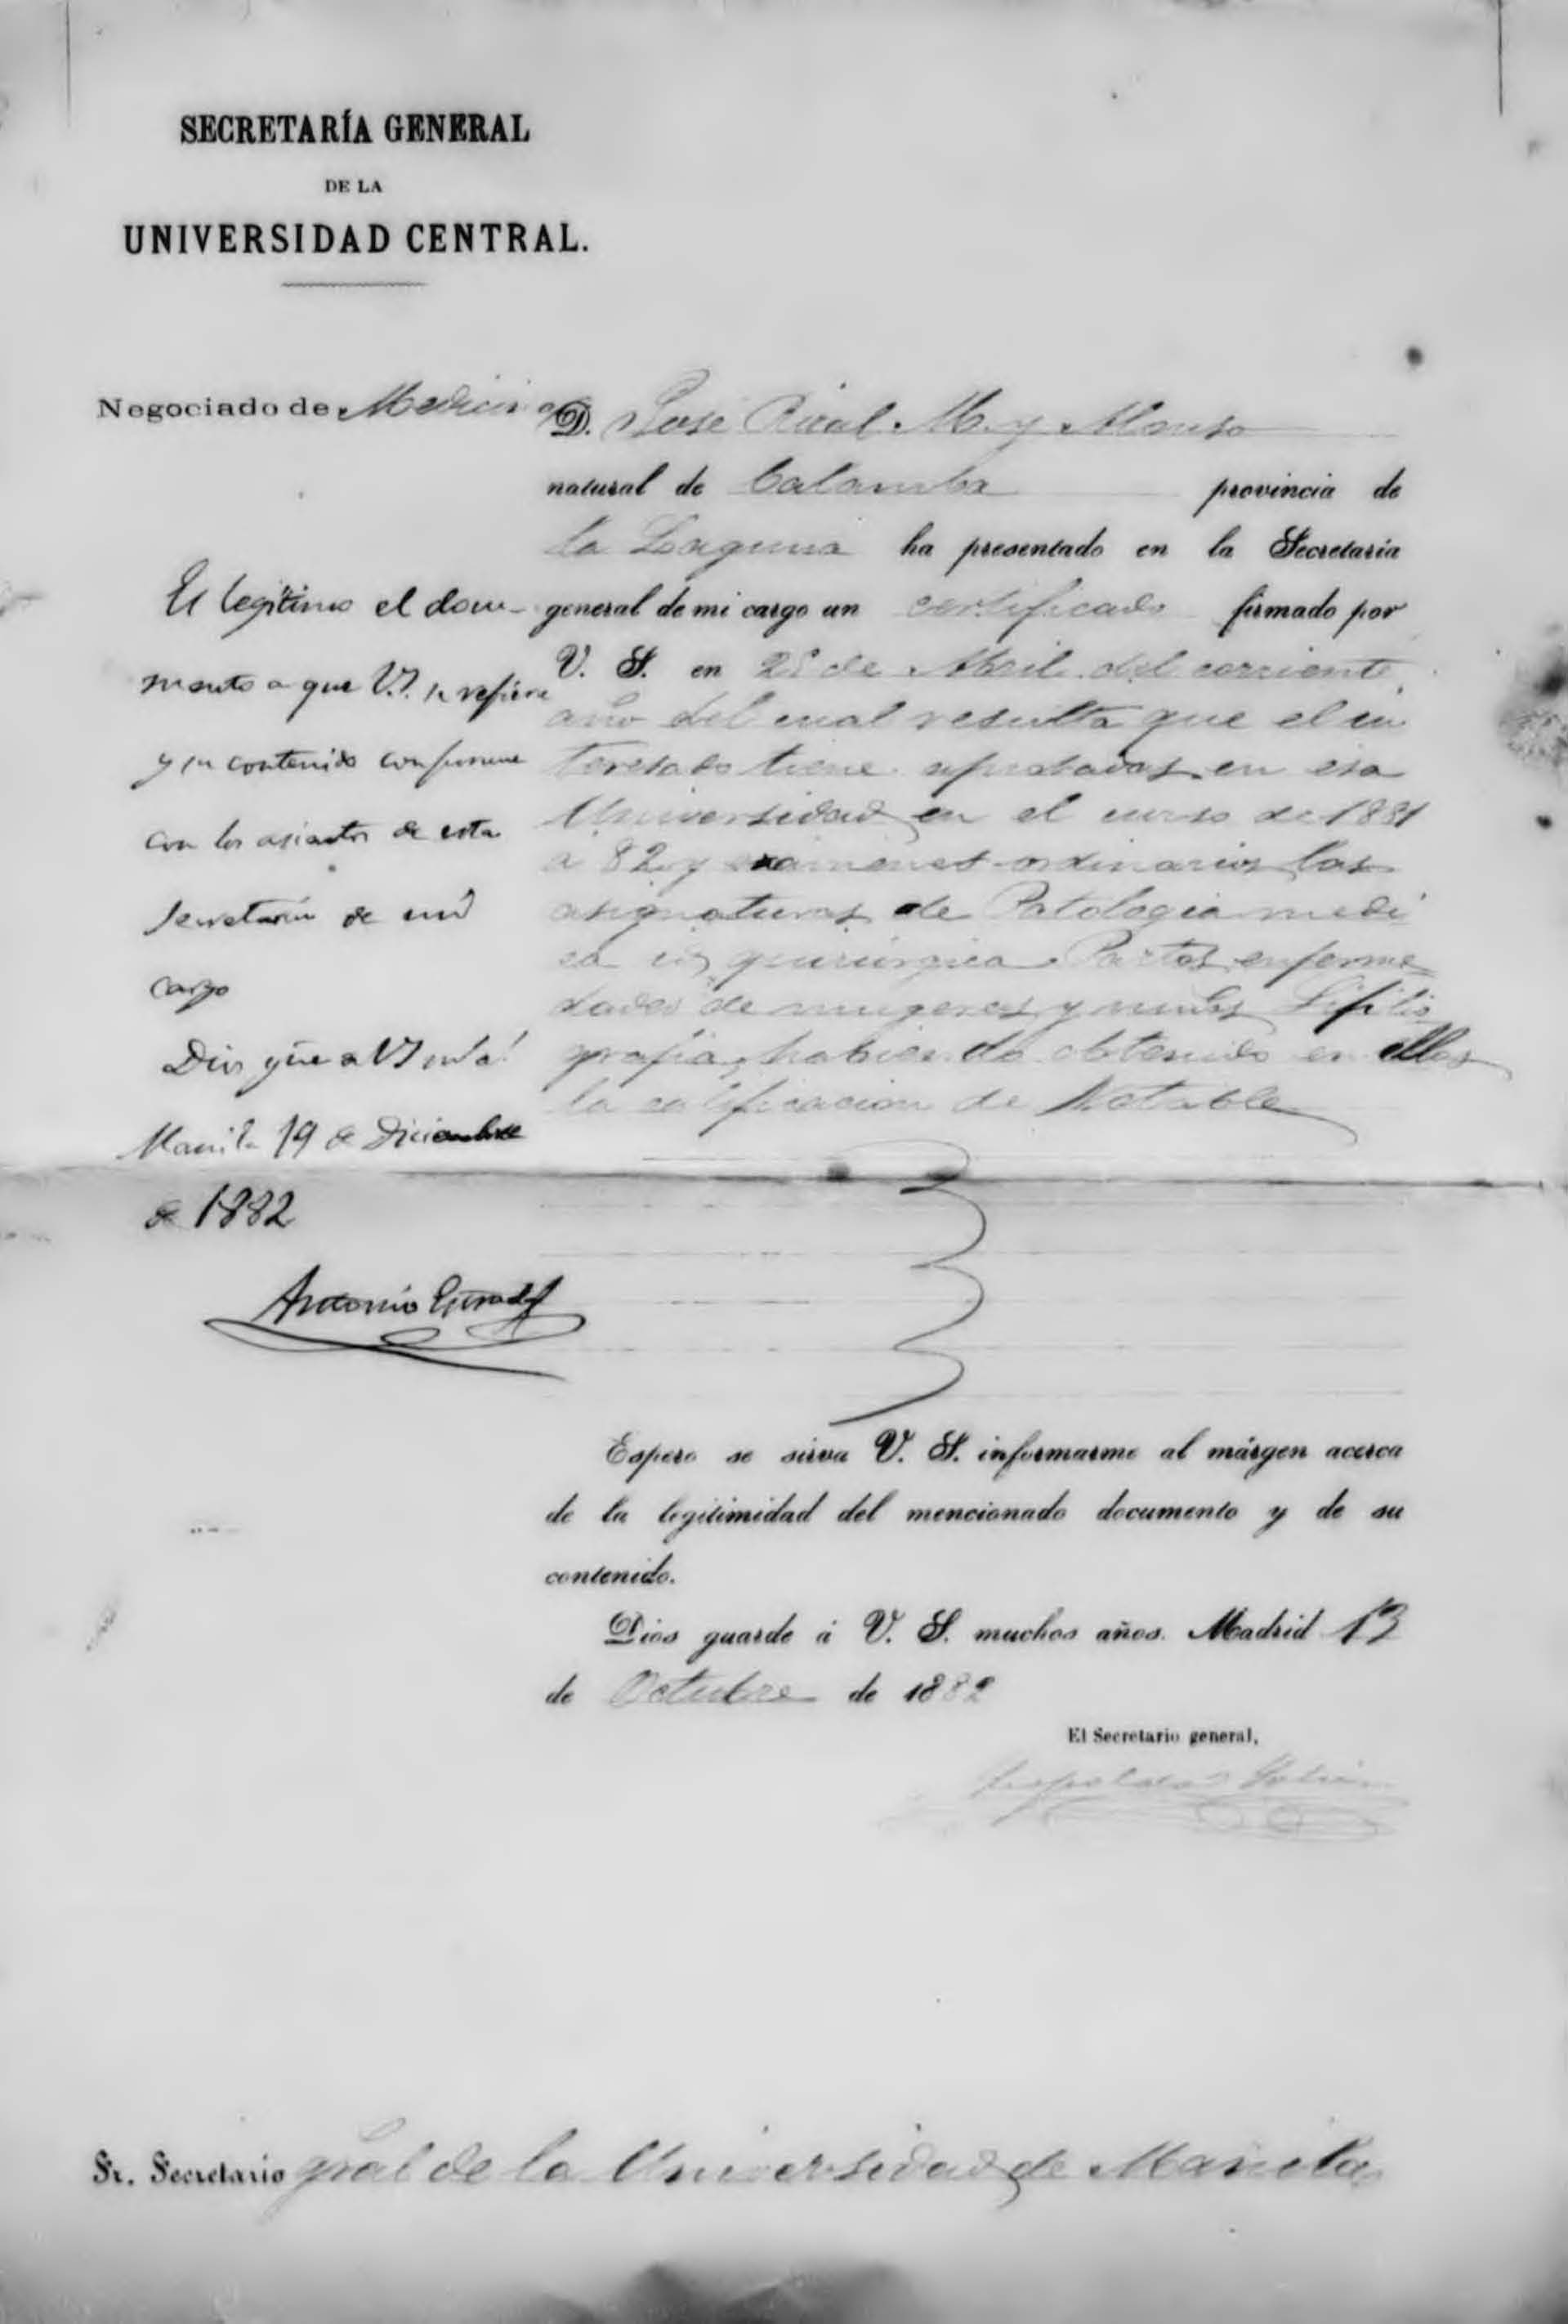 SECRETARÍA GENERAL
DE LA
UNIVERSIDAD CENTRAL.
Negociado de Medicina
D. José Rizal M. y Alonso
natural de Calamba provincia de
la Laguna ha presentado en la Secretaría
general de mi cargo un certificado firmado por
V. S. en 28 de Abril del corriente
año del cual resulta que el in
teresado tiene aprobadas en esa
Universidad en el curso de 1881
a 82 y examenes ordinarios las
asignaturas de Patologia medi
ca quirúrgica Partos enferme
dades de mugeres y niños Sifilio
grafia, habiendo obtenido en ellas
la calificacion de Notable
Es legítimo el docu-
mento a que V.S. se refiere
y su contenido conforme
con los asientos de esta
Secretaría de mi
cargo
Dios gũe a VS m.s a.s
Manila 19 de Diciembre
de 1882
Antonio Estrada
Espero se sirva V. S. informarme al márgen acerca
de la legitimidad del mencionado documento y de su
contenido.
Dios guarde á V. S. muchos años. Madrid 13
de Octubre de 1882
El Secretario general,
Leopoldo Solier
Sr. Secretario gral de la Universidad de Manila